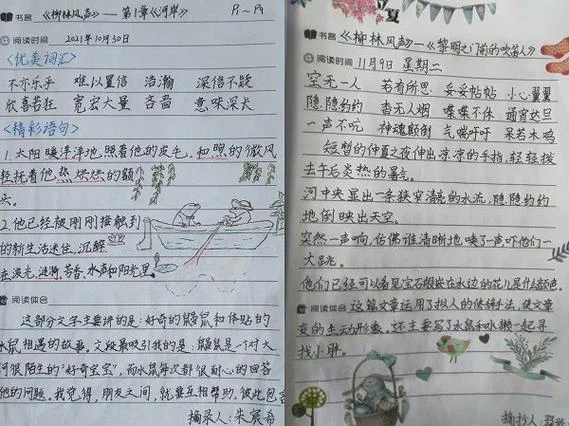 书名 《柳林风声》—第1章《河岸》 P1~P1
阅读时间 2021年10月30日
<优美词汇>
不亦乐乎 难以置信 浩瀚 深信不疑
欣喜若狂 宽宏大量 吝啬 意味深长
<精彩语句>
1.太阳暖洋洋地照着他的皮毛,和煦的微风
轻抚着他热烘烘的额
头。
2.他已经被刚刚接触到
的新生活迷住,沉醉
在波光、涟漪、芳香、水声和阳光里。
阅读体会
这部分文字主要讲的是:好奇的鼹鼠和体贴的
水鼠相遇的故事。文段最吸引我的是:鼹鼠是一个对大
河很陌生的"好奇宝宝",而水鼠每次都很耐心的回答
他的问题。我觉得,朋友之间,就要互相帮助,彼此包容
摘录人:朱宸希
立夏
书名 《柳林风声》—《黎明之门前的吹笛人》
阅读时间 11月9日 星期二
空无一人 若有所思 妥妥帖帖 小心翼翼
隐隐约约 杳无人烟 喋喋不休 通宵达旦
一声不吭 神魂颠倒 气喘吁吁 呆若木鸡
短暂的仲夏之夜伸出凉凉的手指,轻轻拨
去午后炎热的暑礼。
河中央显出一条狭窄清亮的水流,隐隐约约
地倒映出天空。
突然一声响,仿佛谁清晰地唤了声吓他们一
大跳。
他们已经可以看见宝石般嵌在水边的花儿是什么颜色。
阅读体会 这篇文章运用了拟人的修辞手法,使文章
变的生动形象。还主要写了水鼠和水獭一起寻
找小胖。
摘抄人: